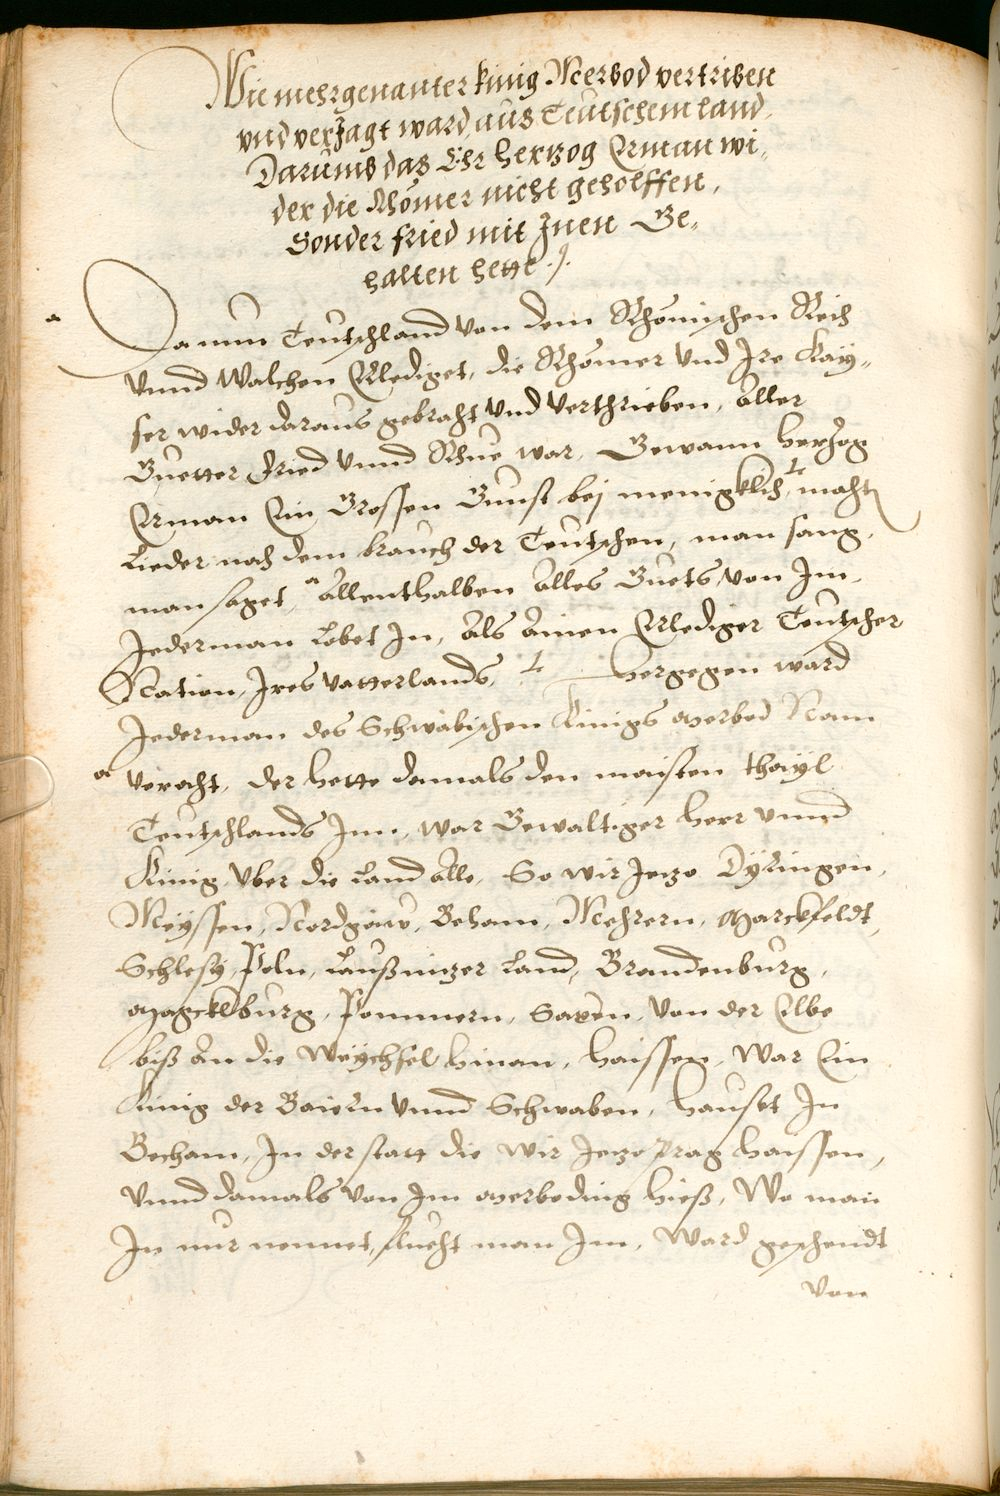 Wie mehrgenanter king Merbod vertriben
vnd verjagt ward aus Teutschem land,
Darumb das Ehr hertzog Erman wi-
der die Rhömer nicht geholffen,
Sonder fried mit Jnen Ge-
halten hette ./.
Da nun Teutschland von dem Rhömischen Reich
vnnd Walchen Erlediget, die Rhömer vnd Jre Kay-
ser wider daraus gebracht vnd verthrieben, Aller
Guetter fried vnnd Rhue war, Gewann hertzog
Erman Ein Grossen Gunst bej menigklich, macht
Lieder nach dem brauch der Teutschen, man sang,
man saget, Allenthalben Alles Guets von Jm,
Jederman Lobet Jn, Als Ainen Erlediger Teutscher
Nation, Jres vatterlands, hergegen ward
Jederman des Schwäbischen Kinigs Merbod Nam
veracht, der hette damals den maisten thayl
Teutschlands Jnn, war Gewaltiger herr vnnd
Kinig vber die Land Alle, So wir Jetzo Düringen,
Meyssen, Nordgaw, Beham, Mehrern, Marckfeldt,
Schlesy, Poln, Laußnitzer Land, Brandenburg,
Magcklburg, Pommern, Saxen, von der Elbe
biß An die Weychsel hinan, haissen, War Ein
Kinig der Baiern vnnd Schwaben, hauset Jn
Becham, Jn der statt die wir Jetzo Prag haissen,
vnnd damals von Jm Merboding hieß, Wo man
Jn nur nennet, flucht man Jm, Ward geschendt
von